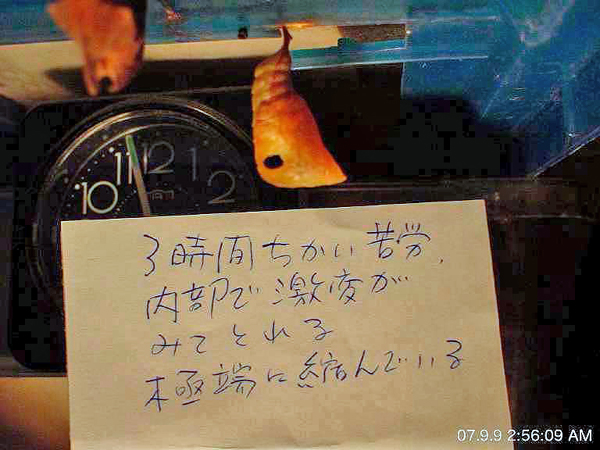 10 11 12 1 2
3時間ちかい苦労、
内部で激変が
みてとれる
極端に縮んでいる
07.9.9 2:56:09 AM